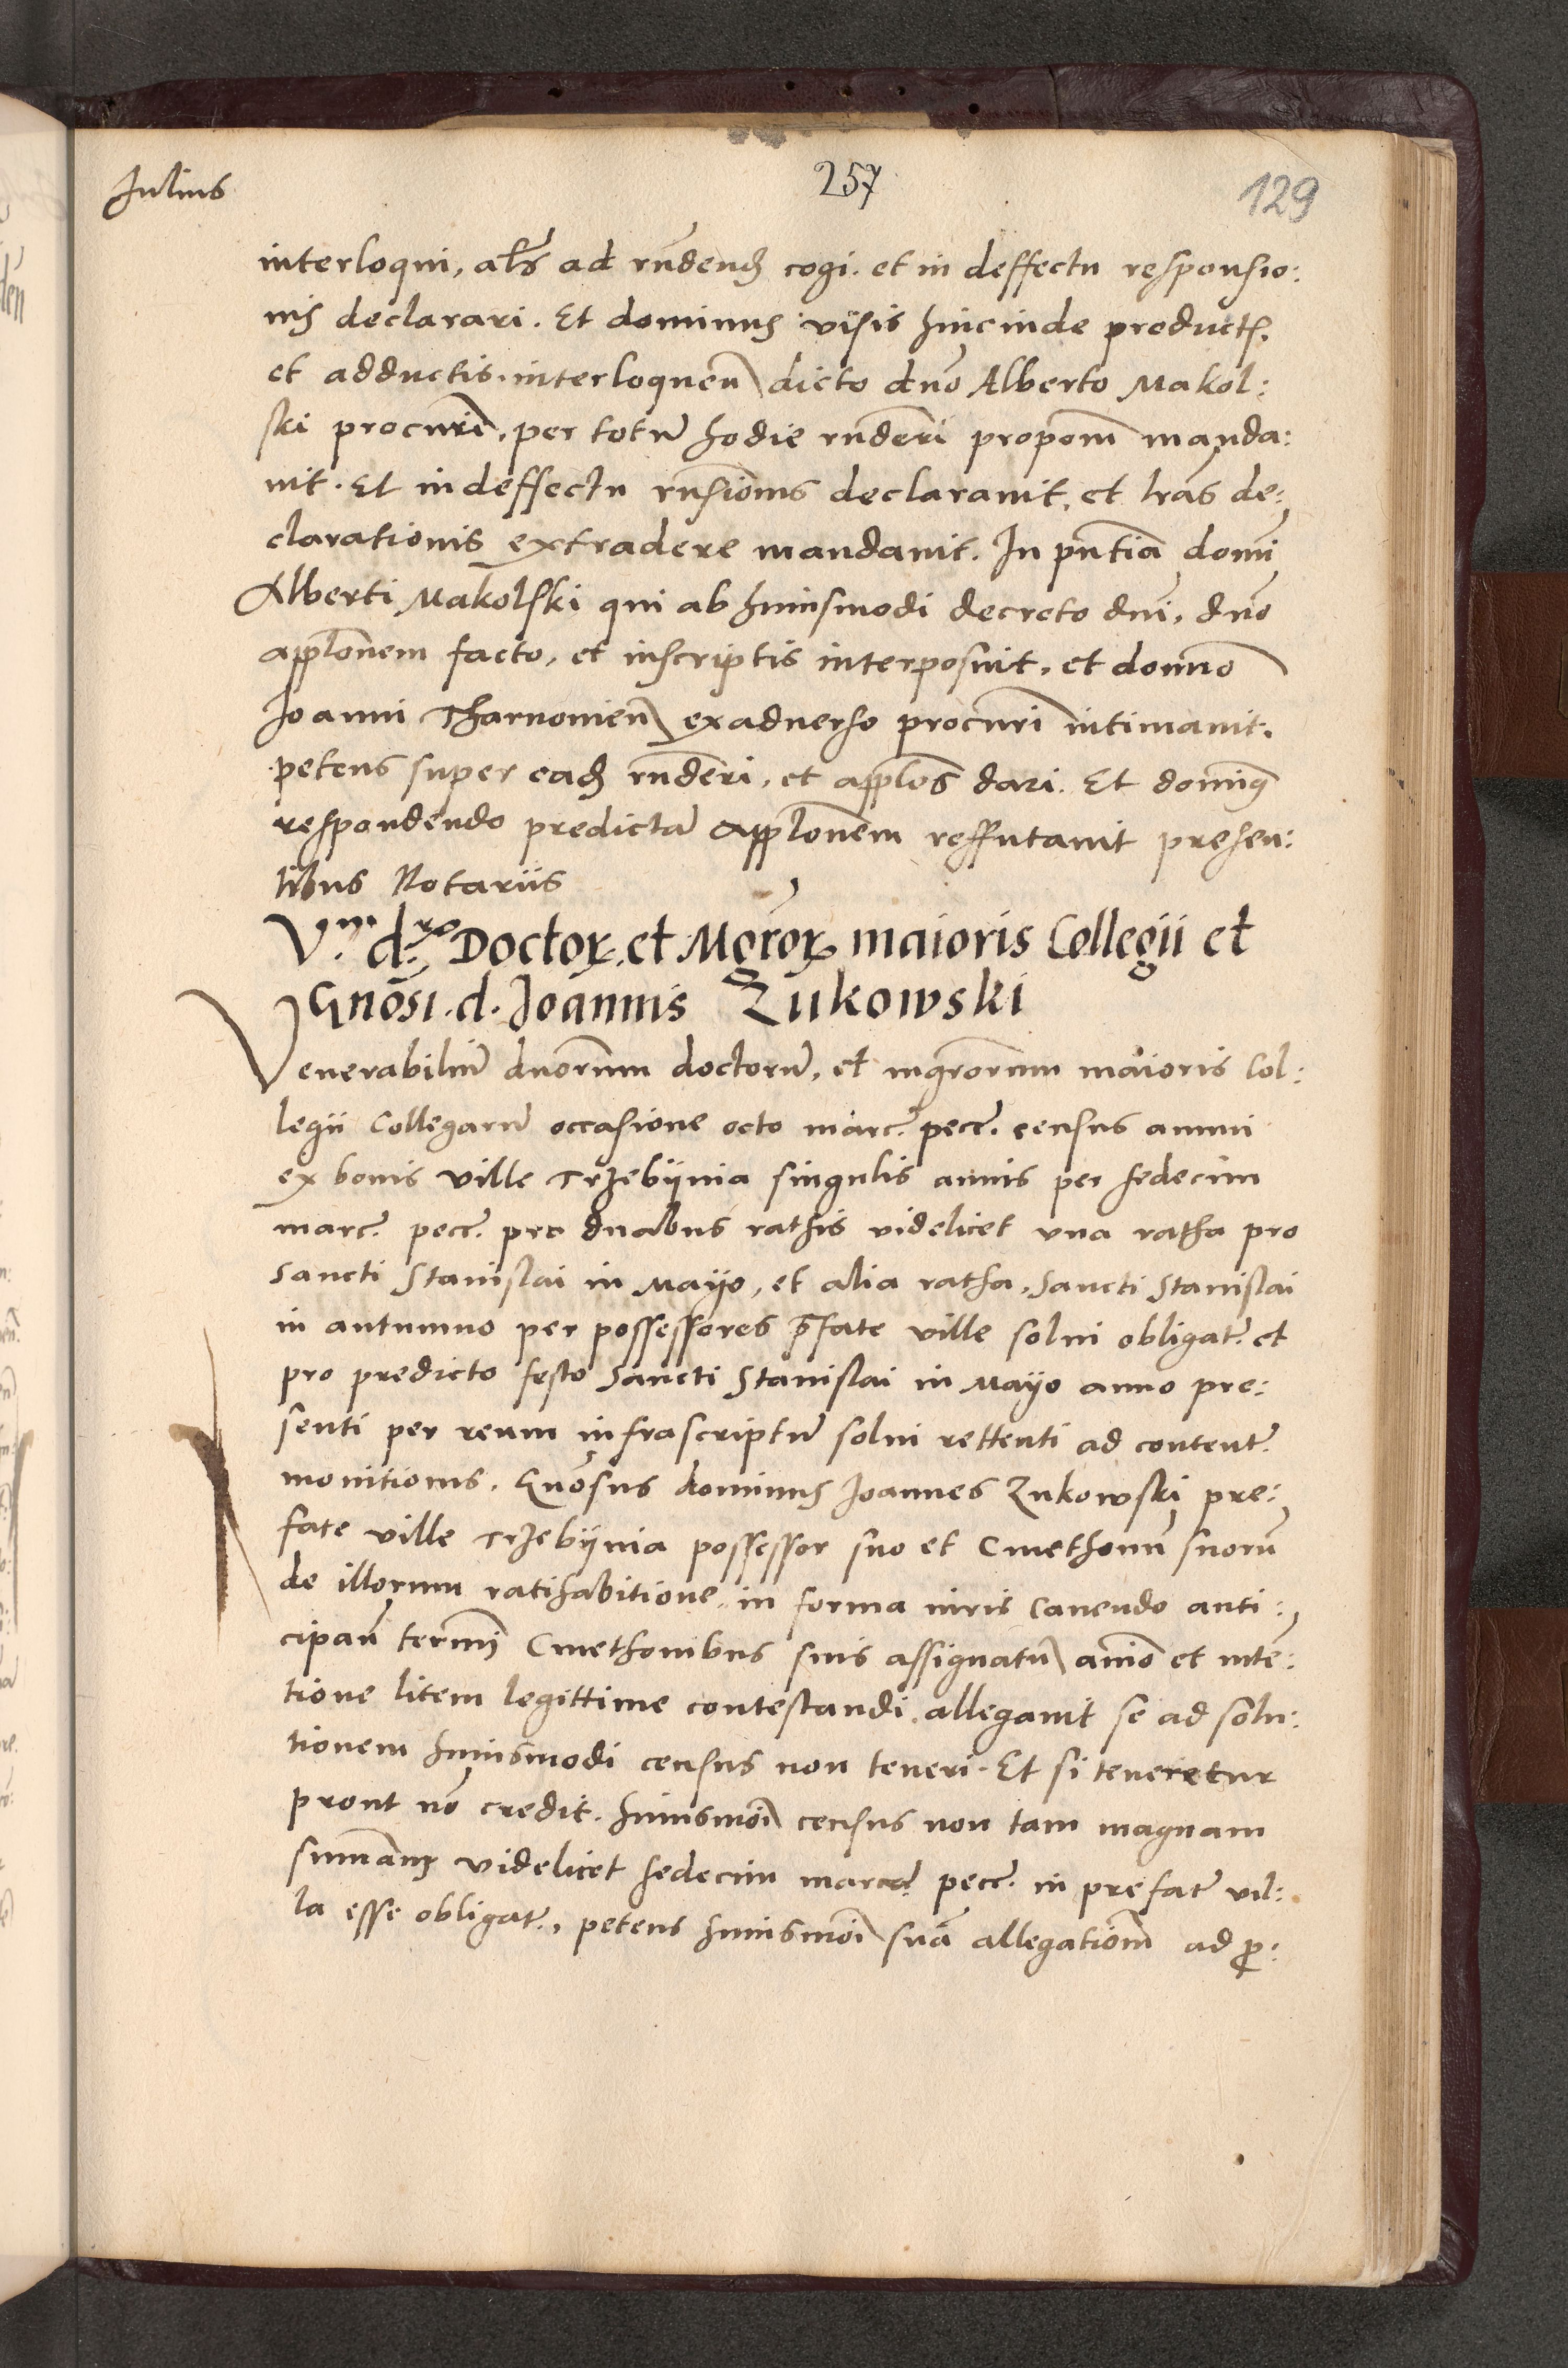 Iulius
257
129
interloqui, als̄ ad rn̄denđ cogi. et in deffectu responsio:
nis declarari. Et dominus visis hincinde product̄.
et adductis. interloquen̄ dicto dn̄o Alberto Makol:
ski procur̄i. per totū hodie rn̄deri propon̄i manda:
uit. Et in deffectu rn̄sionis declarauit. et lr̄as de:
clarationis extradere mandauit. In pn̄tia domi
Alberti Makolski qui ab huiusmodi decreto dn̄i, dn̄o
applōnem facto, et in scriptis interposuit. et domino
Joanni Tharnouien̄ ex aduerso procur̄i intimauit.
petens super eađ rn̄deri, et applōs dari. Et dominus
respondendo predictā applōnem reffutauit presen:
tibus Notariis
V.m d.ro Doctor. et Mgr̄or. maioris Collegii et
Gnōsi. d. Joannis Zukowski
Venerabiliū dnōrum doctorū, et mgr̄orum maioris Col:
legii Collegarū occasione octo marc̄. pecc̄. census annui
ex bonis ville Trzebyinia singulis annis per sedecim
marc̄. pecc̄. pro duabus rathis videlicet vna ratha pro
sancti Stanislai in Mayo, et alia ratha, Sancti Stanislai
in autumno per possessores p̄fate ville solui obligat̄. et
pro predicto festo Sancti Stanislai in Mayo anno pre:
senti per reum infrascriptū solui rettenti ad content̄.
monitionis. Gnōsus dominus Joannes Zukowski pre:
fate ville Trzebyinia possessor suo et Cmethonū suorū
de illorum ratihabitione. in forma iuris Cauendo anti:
cipan̄ termī Cmethonibus suis assignatū animo et intē:
tione litem legittime contestandi. allegauit se ad solu:
tionem huiusmodi census non teneri. Et si teneretur
prout nō credit. huiusmōi census non tam magnam
summam videlicet sedecim marc̄. pecc̄. in prefat̄ vil:
la esse obligat̄., petens huiusmōi suā allegationē ad p: